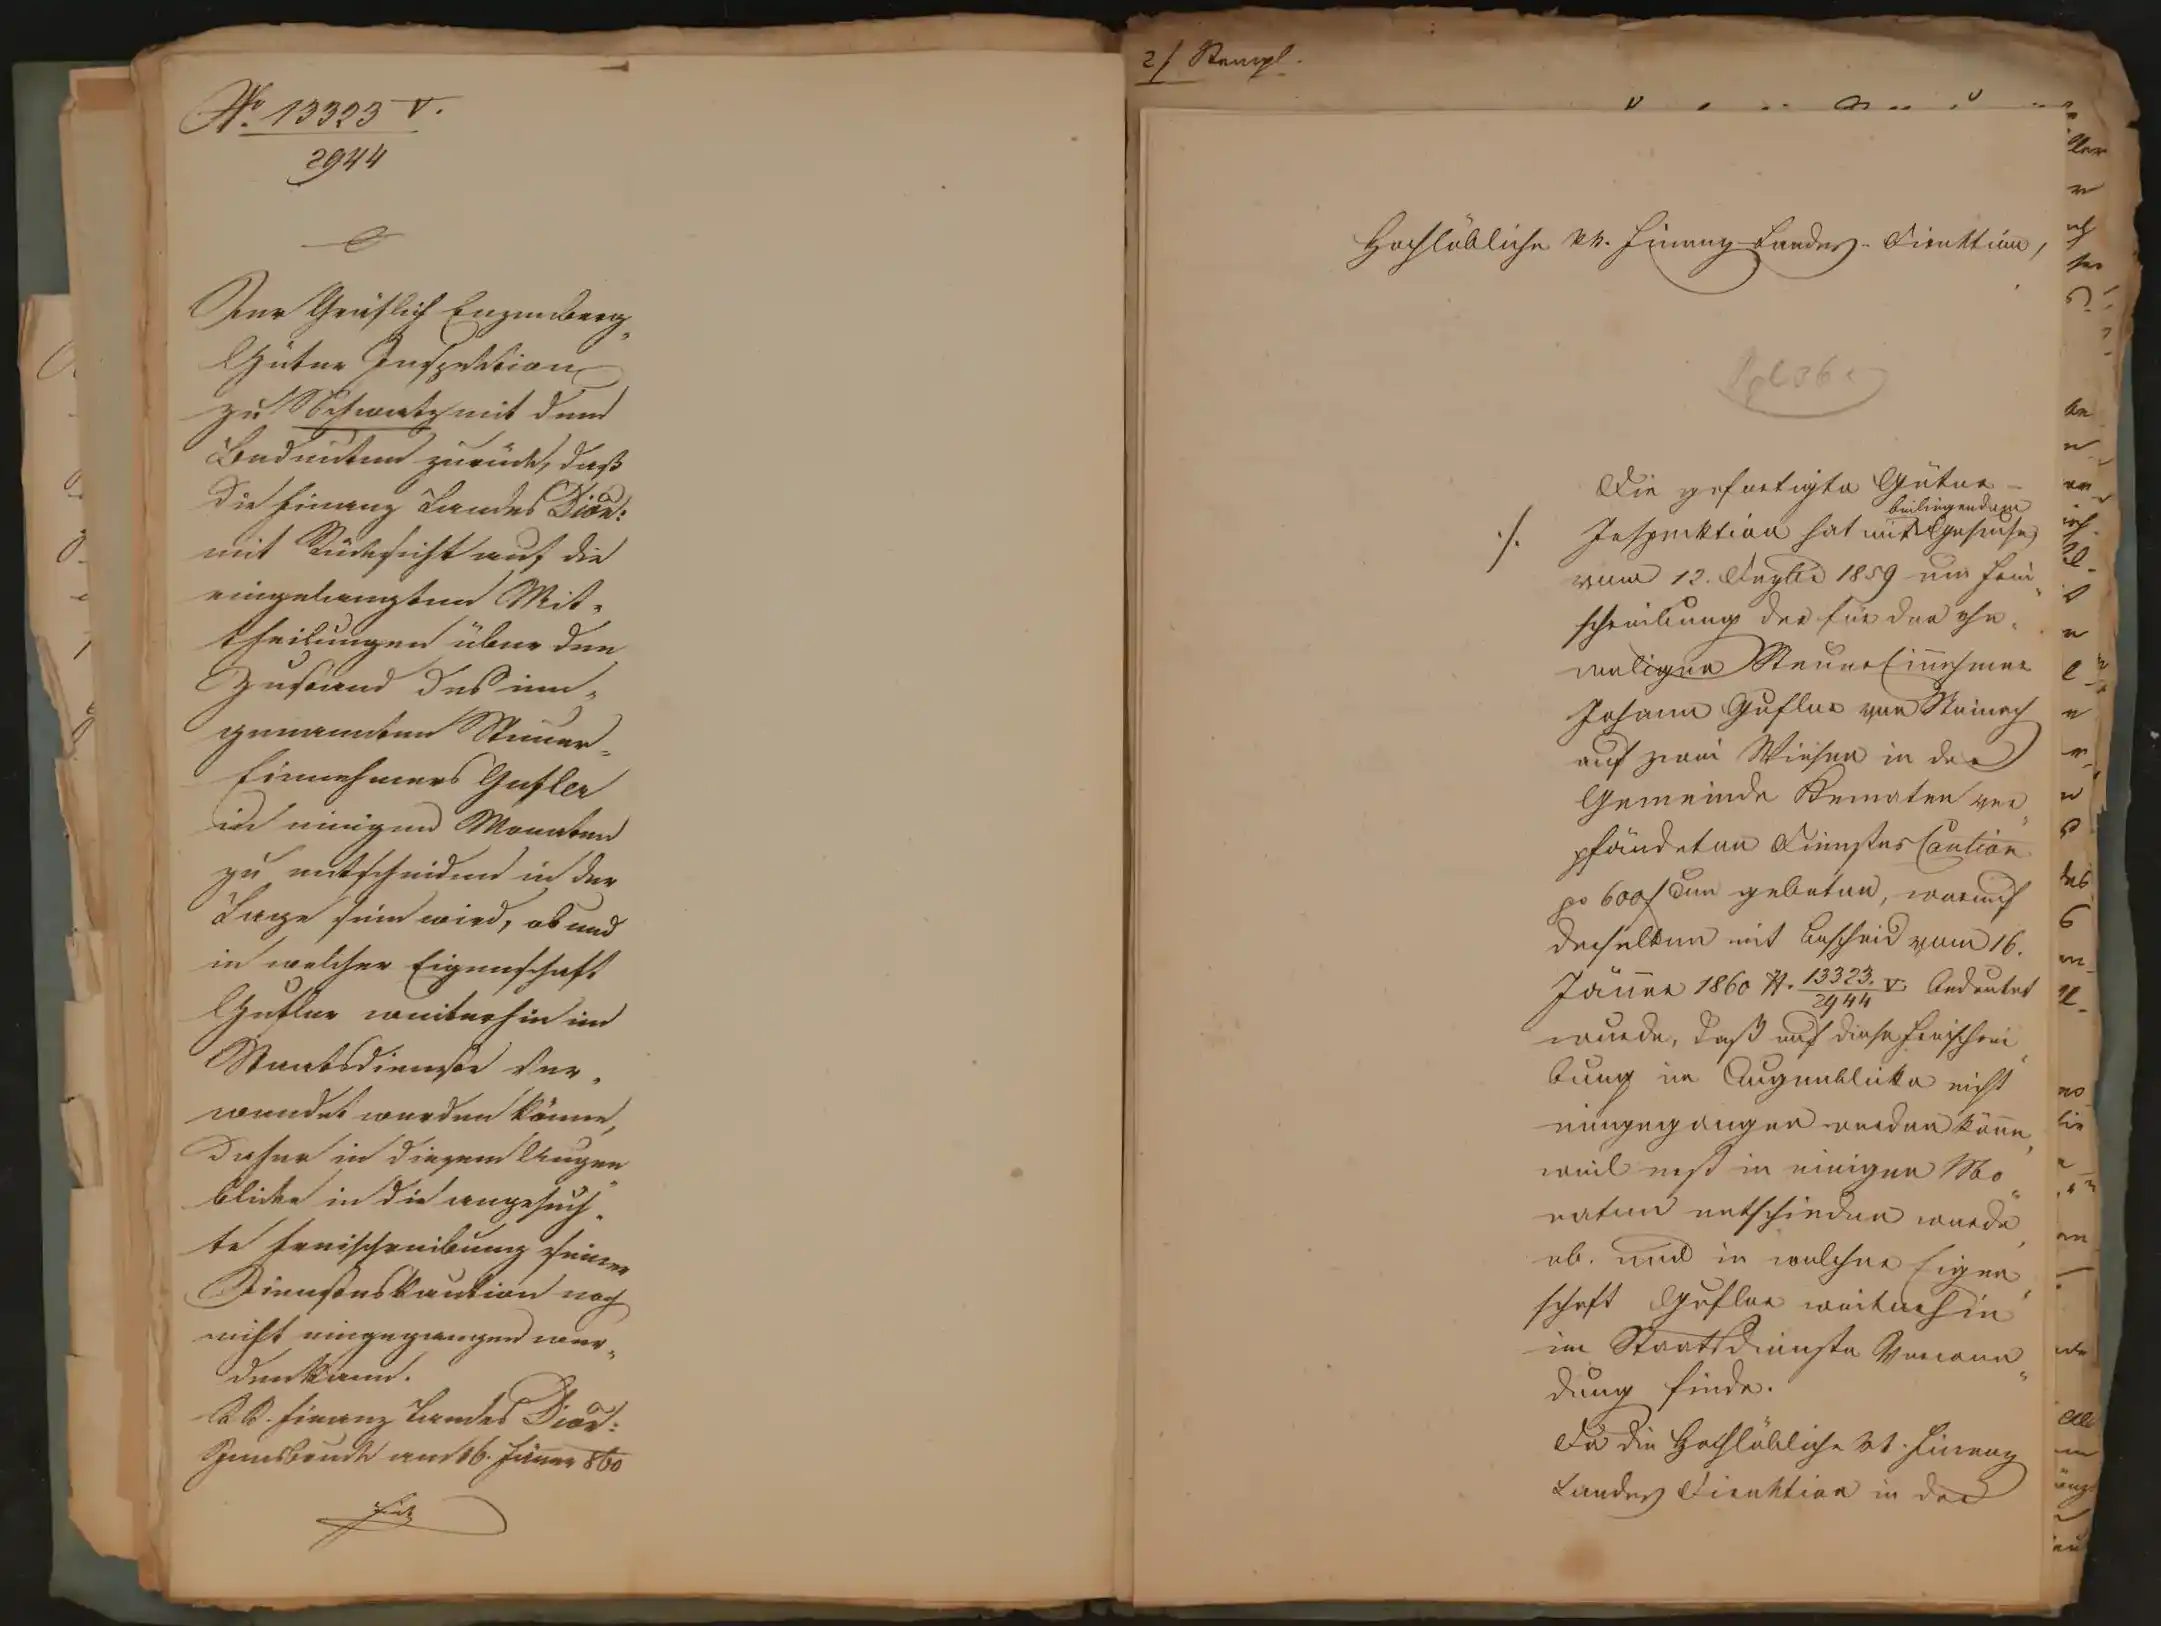 No. 13323 V.
2944
Der Gräflich Enzenberg„
Güter Inspektion
zu Schwatz mit dem
Bedeuten zurück, daß
die Finanz Landes Dion:
mit Rücksicht auf die
eingelangten Mit„
theilungen über den
Zustand des inn„
genannten Steuer„
Einnehmers Gufler
in einigen Monaten
zu entscheiden in der
Lage sein wird, ob und
in welcher Eigenschaft
Gufler weiterhin im
Staatsdienste ver„
wendet werden könne,
daher in diesem Augen„
blicke in die angesuch„
te Freischreibung seiner
Diensteskaution noch
nicht eingegangen wer„
den kann.
K.K. Finanz Landes Dion:
Innsbruck am 16. Jänner 860
2/ Stempl.
Hochlöbliche kk. Finanz-Landes-Direktion,
Die gefertigte Güter-
beiliegendem
./. Inspecktion hat mit Gesuche
vom 12. Dezbr 1859 um Frei„
schreibung der für den ehe„
maligen Steuer Einnehmer
Johann Gufler von Steinach
auf zwei Wiesen in der
Gemeinde Kematen ver„
pfändeten Dienstes Caution
po 600 f gebeten, worauf
derselben mit Bescheid vom 16.
Jänner 1860 N. 13323./2944 V. bedeutet
wurde, daß auf diese Freischrei„
bung im Augenblicke nicht
eingegangen werden könne,
weil erst in einigen Mo„
naten entschieden werde,
ob. und in welcher Eigen„
schaft Gufler weiterhin
im Staatsdienste Verwen„
dung finde.
Da die Hochlöbliche kk. Finanz
Landes Direktion in der